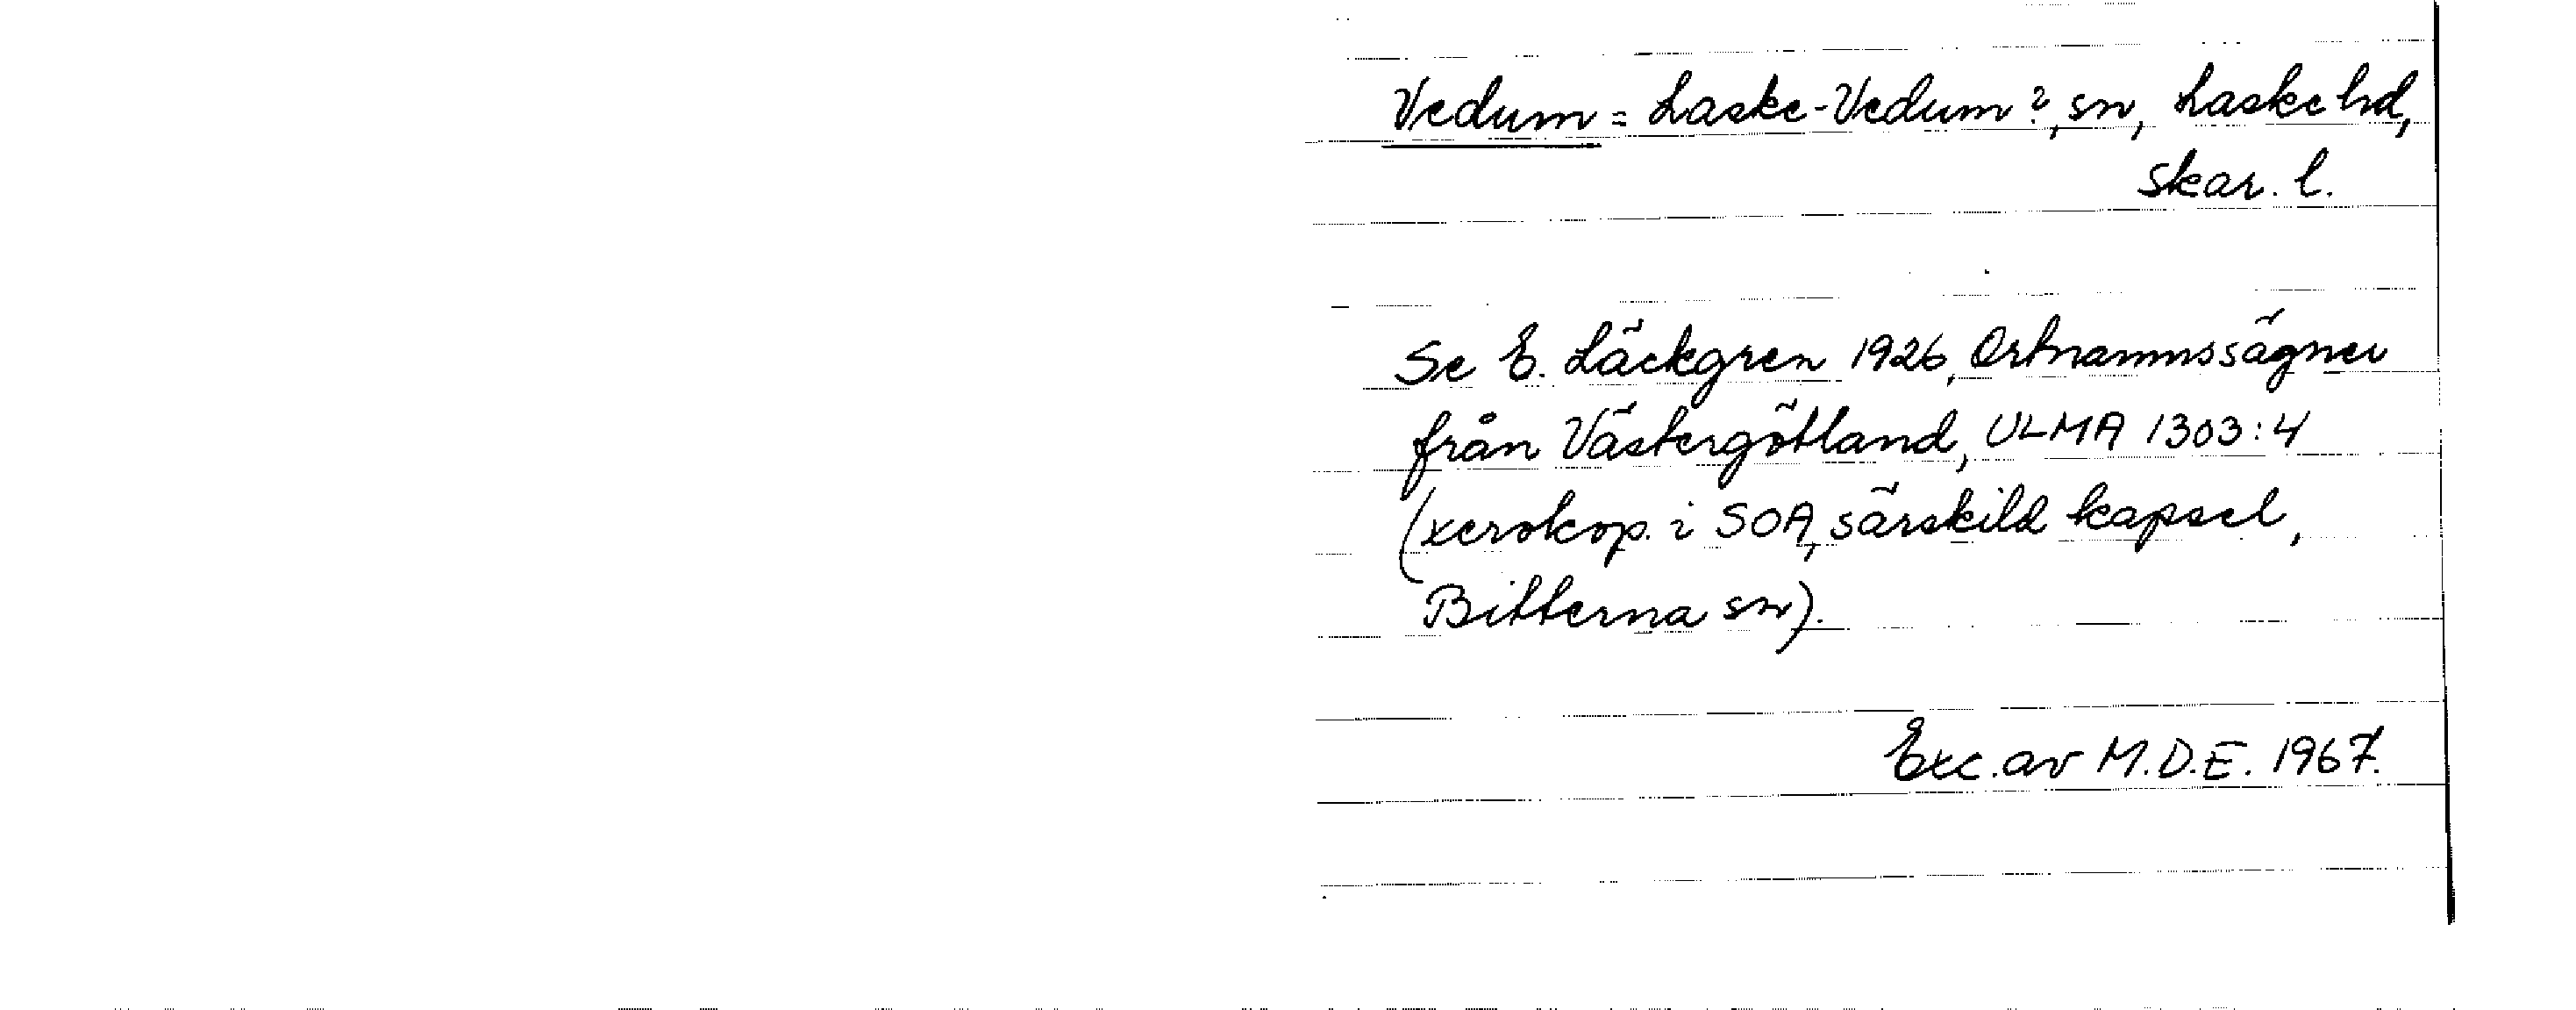 Vedum = Laske-Vedum?, sn, Laske hd,
Skar. l.
Se E. Läckgren 1926, Ortnamnssägner
från Västergötland, ULMA 1303:4
(xerokop. i SOA, särskild kapsel,
Bitterna sn).
Exc. av M.D.E. 1967.